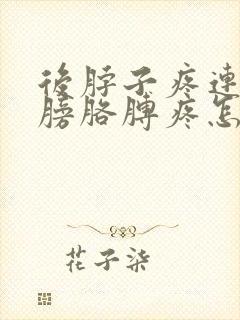 後脖子疼連
膀胳膊疼怎
花子柒